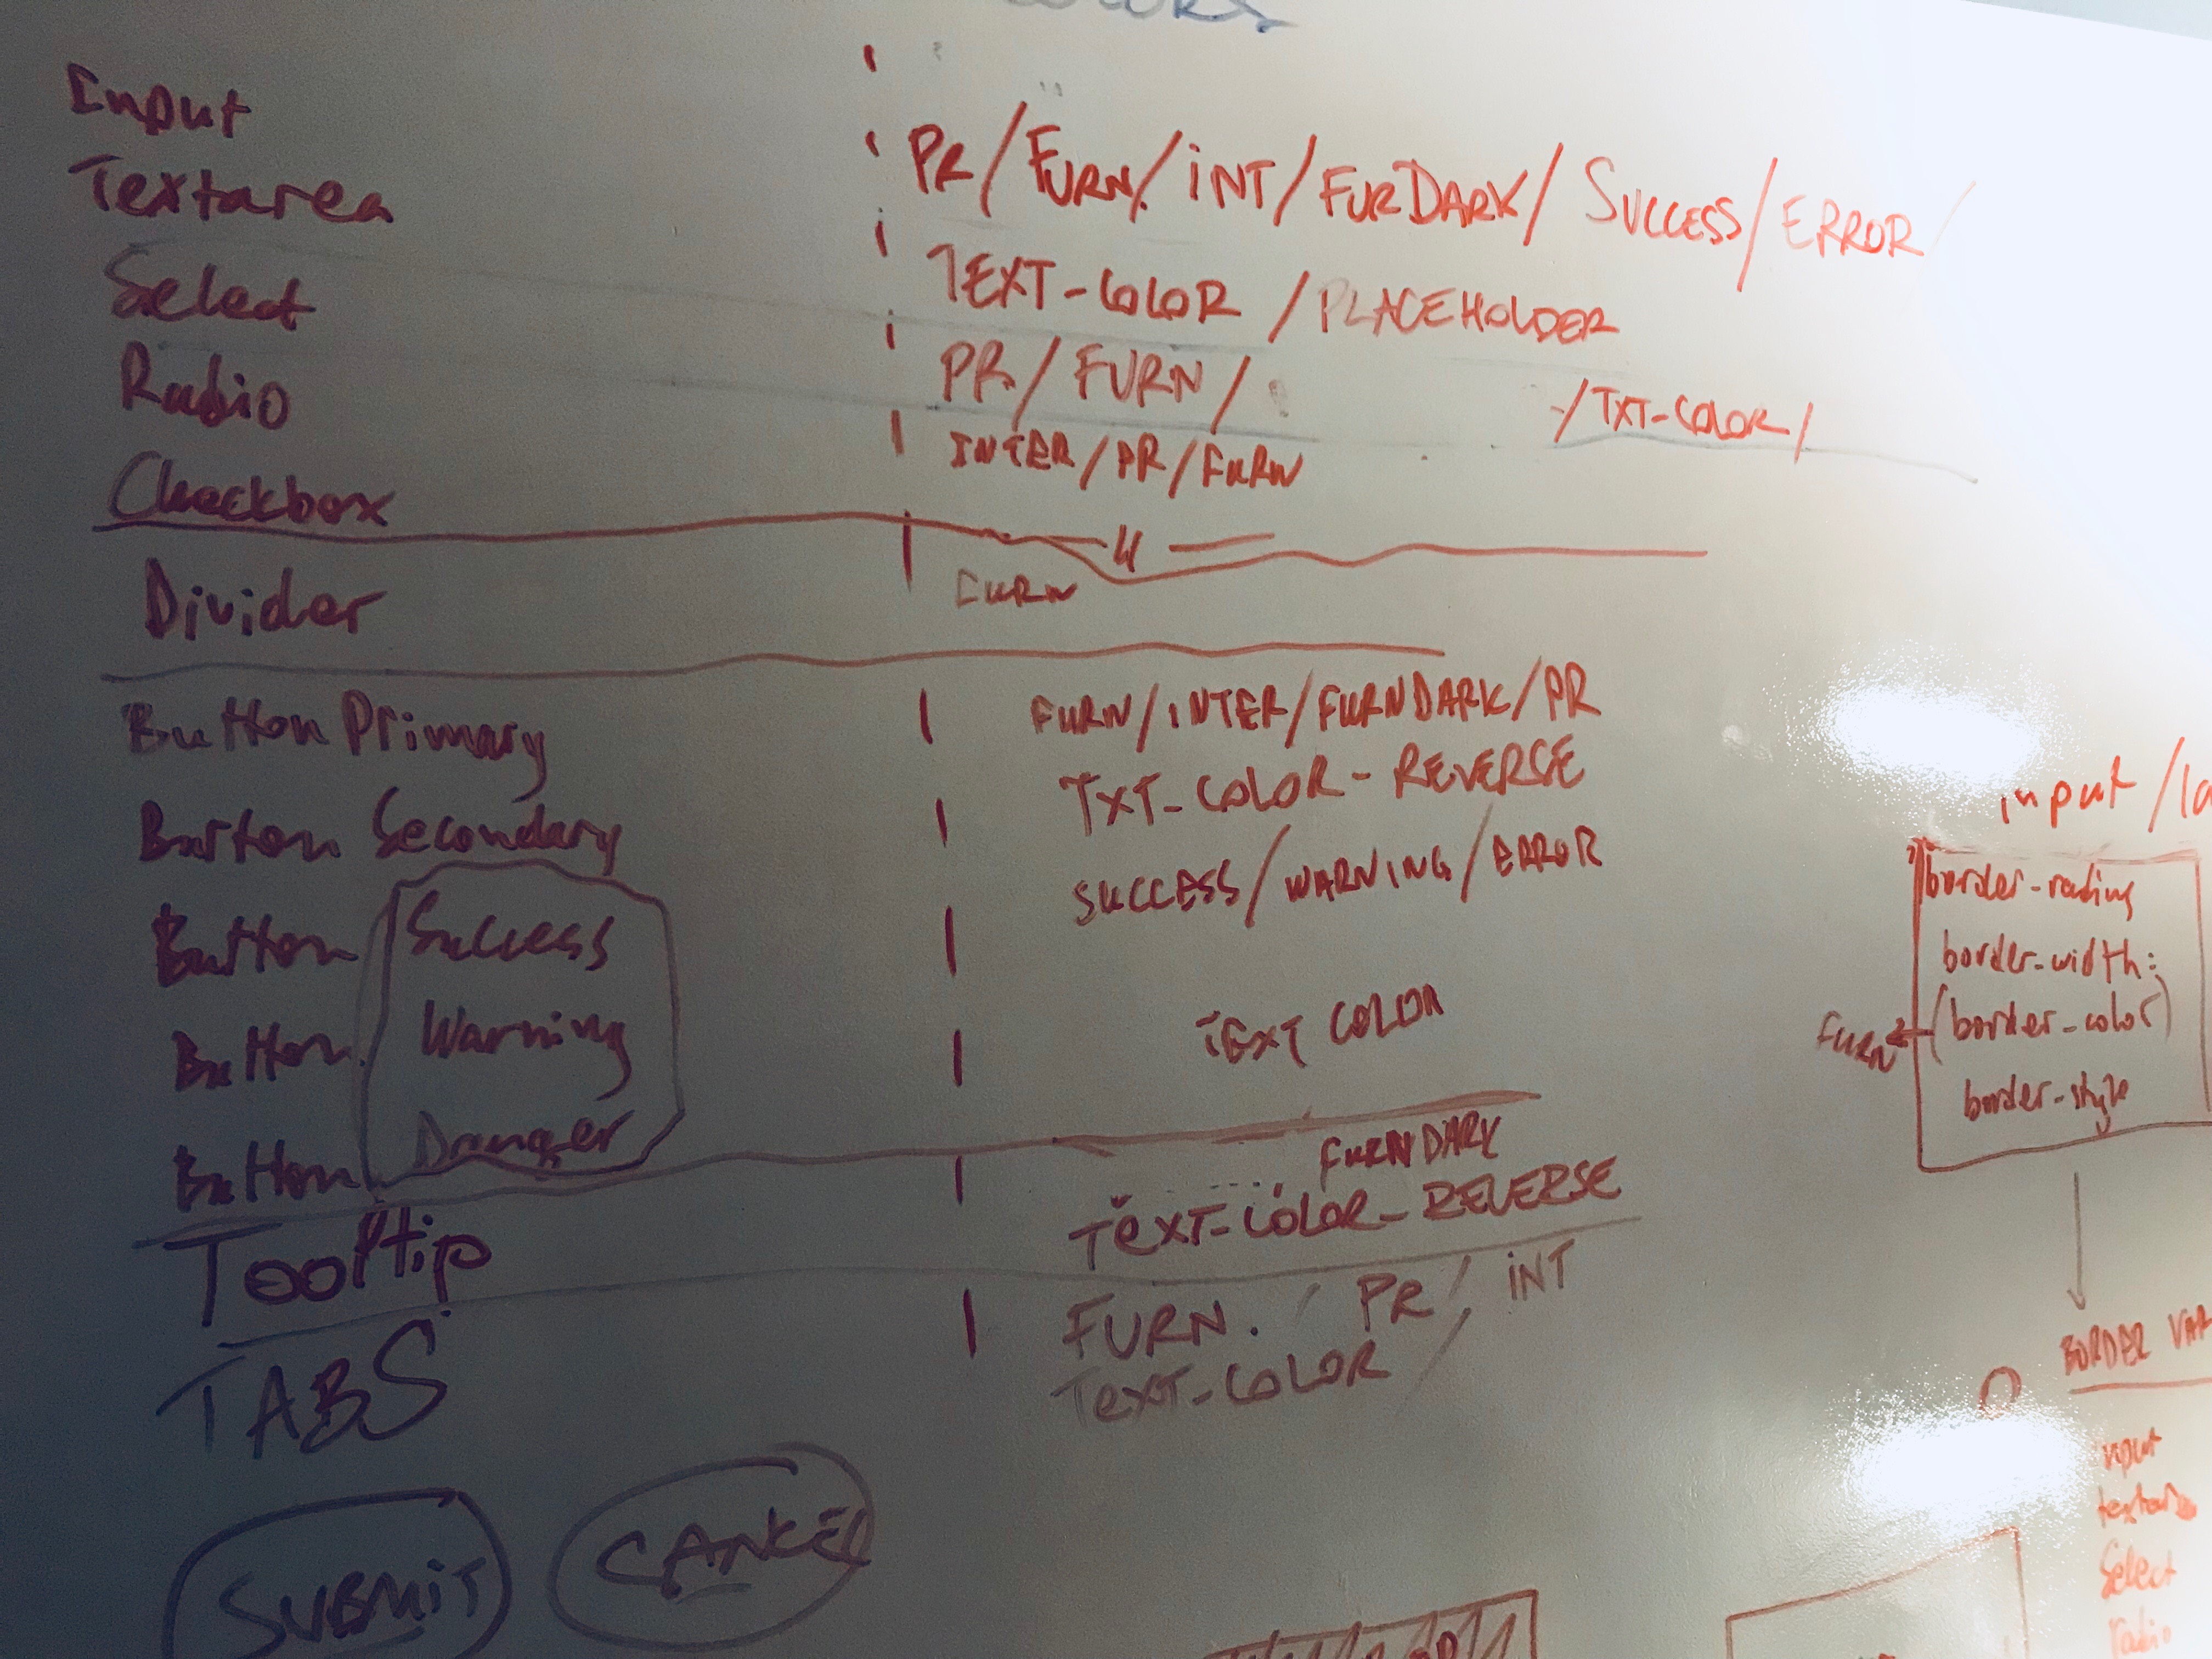 Input
Textarea
Select
Radio
Checkbox
PR/FURN/INT/FURDARK/SUCCESS/ERROR/
TEXT-COLOR/PLACEHOLDER
PR/FURN/ -/TXT-COLOR/
INTER/PR/FURN
— " —
Divider
FURN
Button Primary
Button Secondary
Button Success
Button Warning
Button Danger
FURN/INTER/FURNDARK/PR
TXT-COLOR-REVERSE
SUCCESS/WARNING/ERROR
TEXT COLOR
Tooltip
FURNDARK
TEXT-COLOR-REVERSE
TABS
FURN. / PR / INT
TEXT-COLOR /
SUBMIT
CANCEL
input/la
border-radius
border-width:
(border-color)
border-style
FURN
BORDER VAR
input
textarea
Select
radio